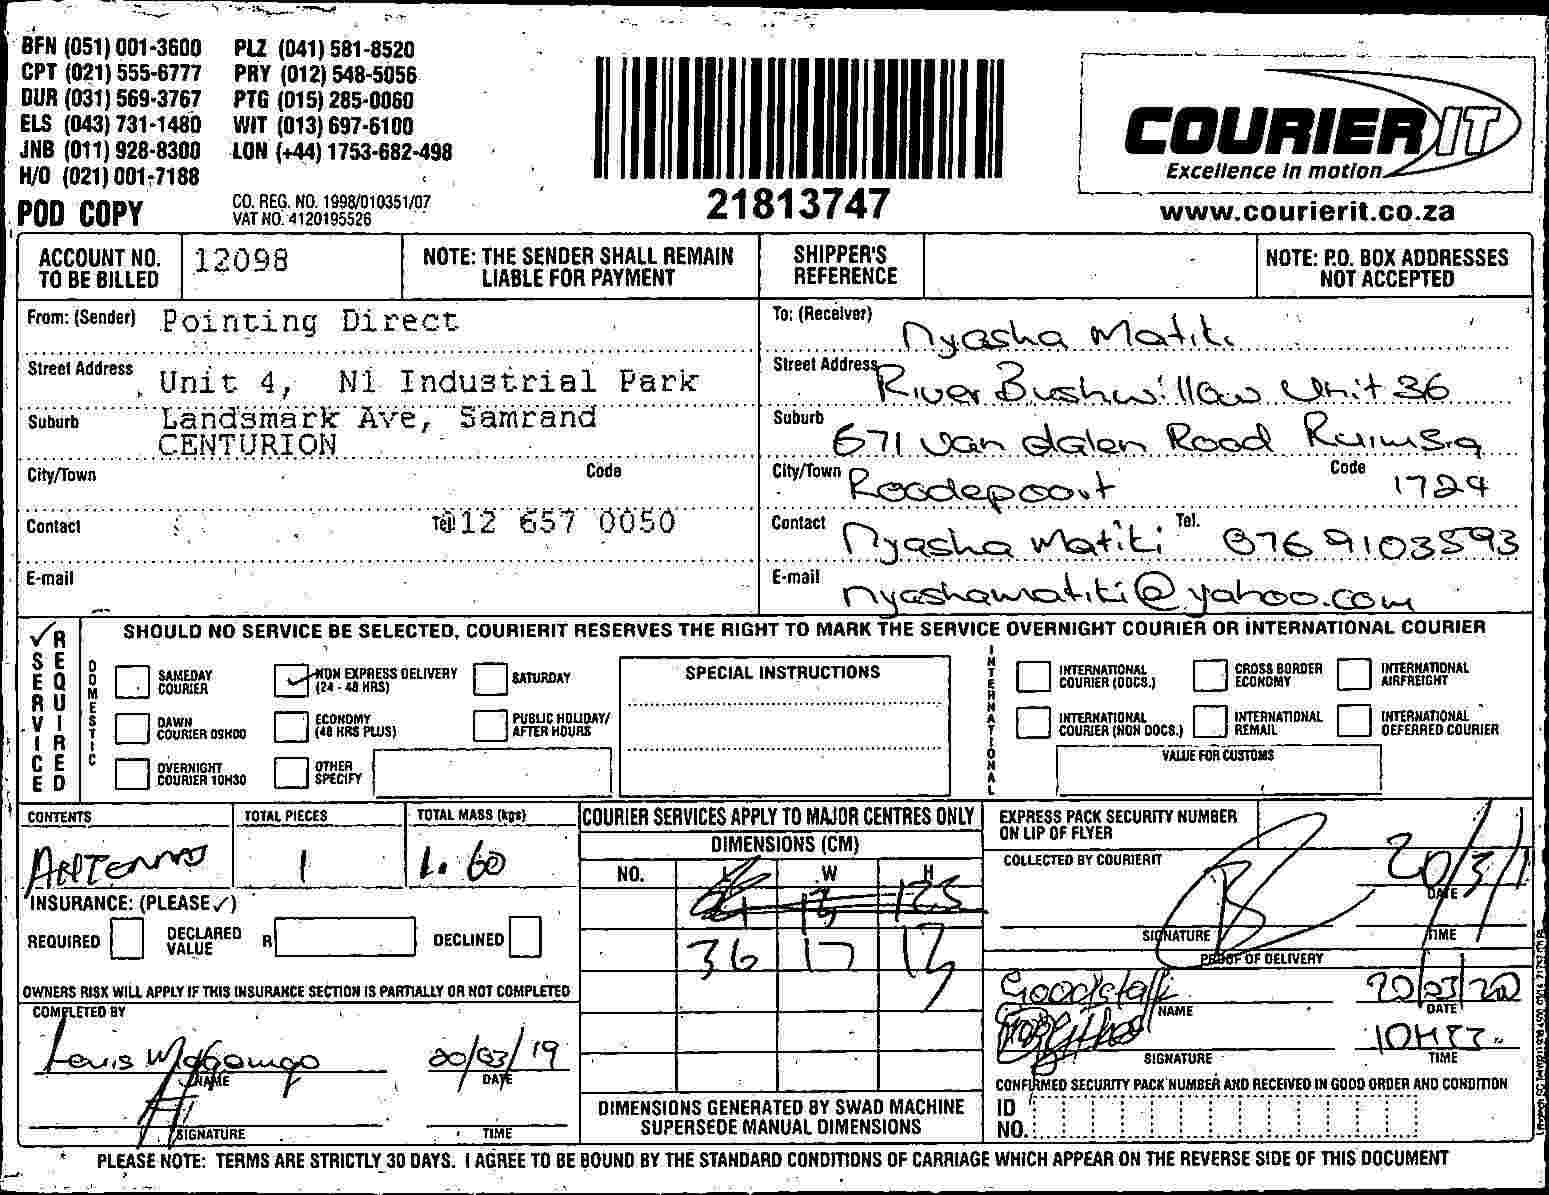 BFN (051) 001-3600 PLZ (041) 581-8520
CPT (021) 555-6777 PRY (012) 548-5056
DUR (031) 569-3767 PTG (015) 285-0060
ELS (043) 731-1480 WIT (013) 697-6100
JNB (011) 928-8300 LON (+44) 1753-682-498
H/O (021) 001-7188
POD COPY
CO. REG. NO. 1998/010351/07
VAT NO. 4120195526
21813747
COURIER IT
Excellence in motion
www.courierit.co.za
ACCOUNT NO. TO BE BILLED 12098
NOTE: THE SENDER SHALL REMAIN LIABLE FOR PAYMENT
SHIPPER'S REFERENCE
NOTE: P.O. BOX ADDRESSES NOT ACCEPTED
From: (Sender) Pointing Direct
Street Address Unit 4, N1 Industrial Park
Suburb Landsmark Ave, Samrand
CENTURION
City/Town Code
Contact Tel 012 657 0050
E-mail
To: (Receiver) Nyasha Matiki
Street Address River Bushwillow Unit 36
Suburb 671 van dalen Road Ruimsig
City/Town Roodepoort Code 1724
Contact Nyasha Matiki Tel. 076 9103593
E-mail nyashamatiki@yahoo.com
SERVICE REQUIRED
SHOULD NO SERVICE BE SELECTED, COURIERIT RESERVES THE RIGHT TO MARK THE SERVICE OVERNIGHT COURIER OR INTERNATIONAL COURIER
DOMESTIC
SAMEDAY COURIER
NON EXPRESS DELIVERY (24 - 48 HRS)
SATURDAY
DAWN COURIER 09H00
ECONOMY (48 HRS PLUS)
PUBLIC HOLIDAY/ AFTER HOURS
OVERNIGHT COURIER 10H30
OTHER SPECIFY
SPECIAL INSTRUCTIONS
INTERNATIONAL
INTERNATIONAL COURIER (DOCS.)
CROSS BORDER ECONOMY
INTERNATIONAL AIRFREIGHT
INTERNATIONAL COURIER (NON DOCS.)
INTERNATIONAL REMAIL
INTERNATIONAL DEFERRED COURIER
VALUE FOR CUSTOMS
CONTENTS
TOTAL PIECES 1
TOTAL MASS (kgs) 1.60
INSURANCE: (PLEASE ✓)
REQUIRED DECLARED VALUE R DECLINED
OWNERS RISK WILL APPLY IF THIS INSURANCE SECTION IS PARTIALLY OR NOT COMPLETED
COMPLETED BY
Louis
NAME
20/03/19
DATE
SIGNATURE TIME
COURIER SERVICES APPLY TO MAJOR CENTRES ONLY
DIMENSIONS (CM)
NO. L W H
36 17 13
DIMENSIONS GENERATED BY SWAD MACHINE SUPERSEDE MANUAL DIMENSIONS
EXPRESS PACK SECURITY NUMBER ON LIP OF FLYER
COLLECTED BY COURIERIT
20/3/1
DATE
SIGNATURE TIME
PROOF OF DELIVERY
NAME
20/03/20
DATE
SIGNATURE TIME
CONFIRMED SECURITY PACK NUMBER AND RECEIVED IN GOOD ORDER AND CONDITION
ID NO.
PLEASE NOTE: TERMS ARE STRICTLY 30 DAYS. I AGREE TO BE BOUND BY THE STANDARD CONDITIONS OF CARRIAGE WHICH APPEAR ON THE REVERSE SIDE OF THIS DOCUMENT